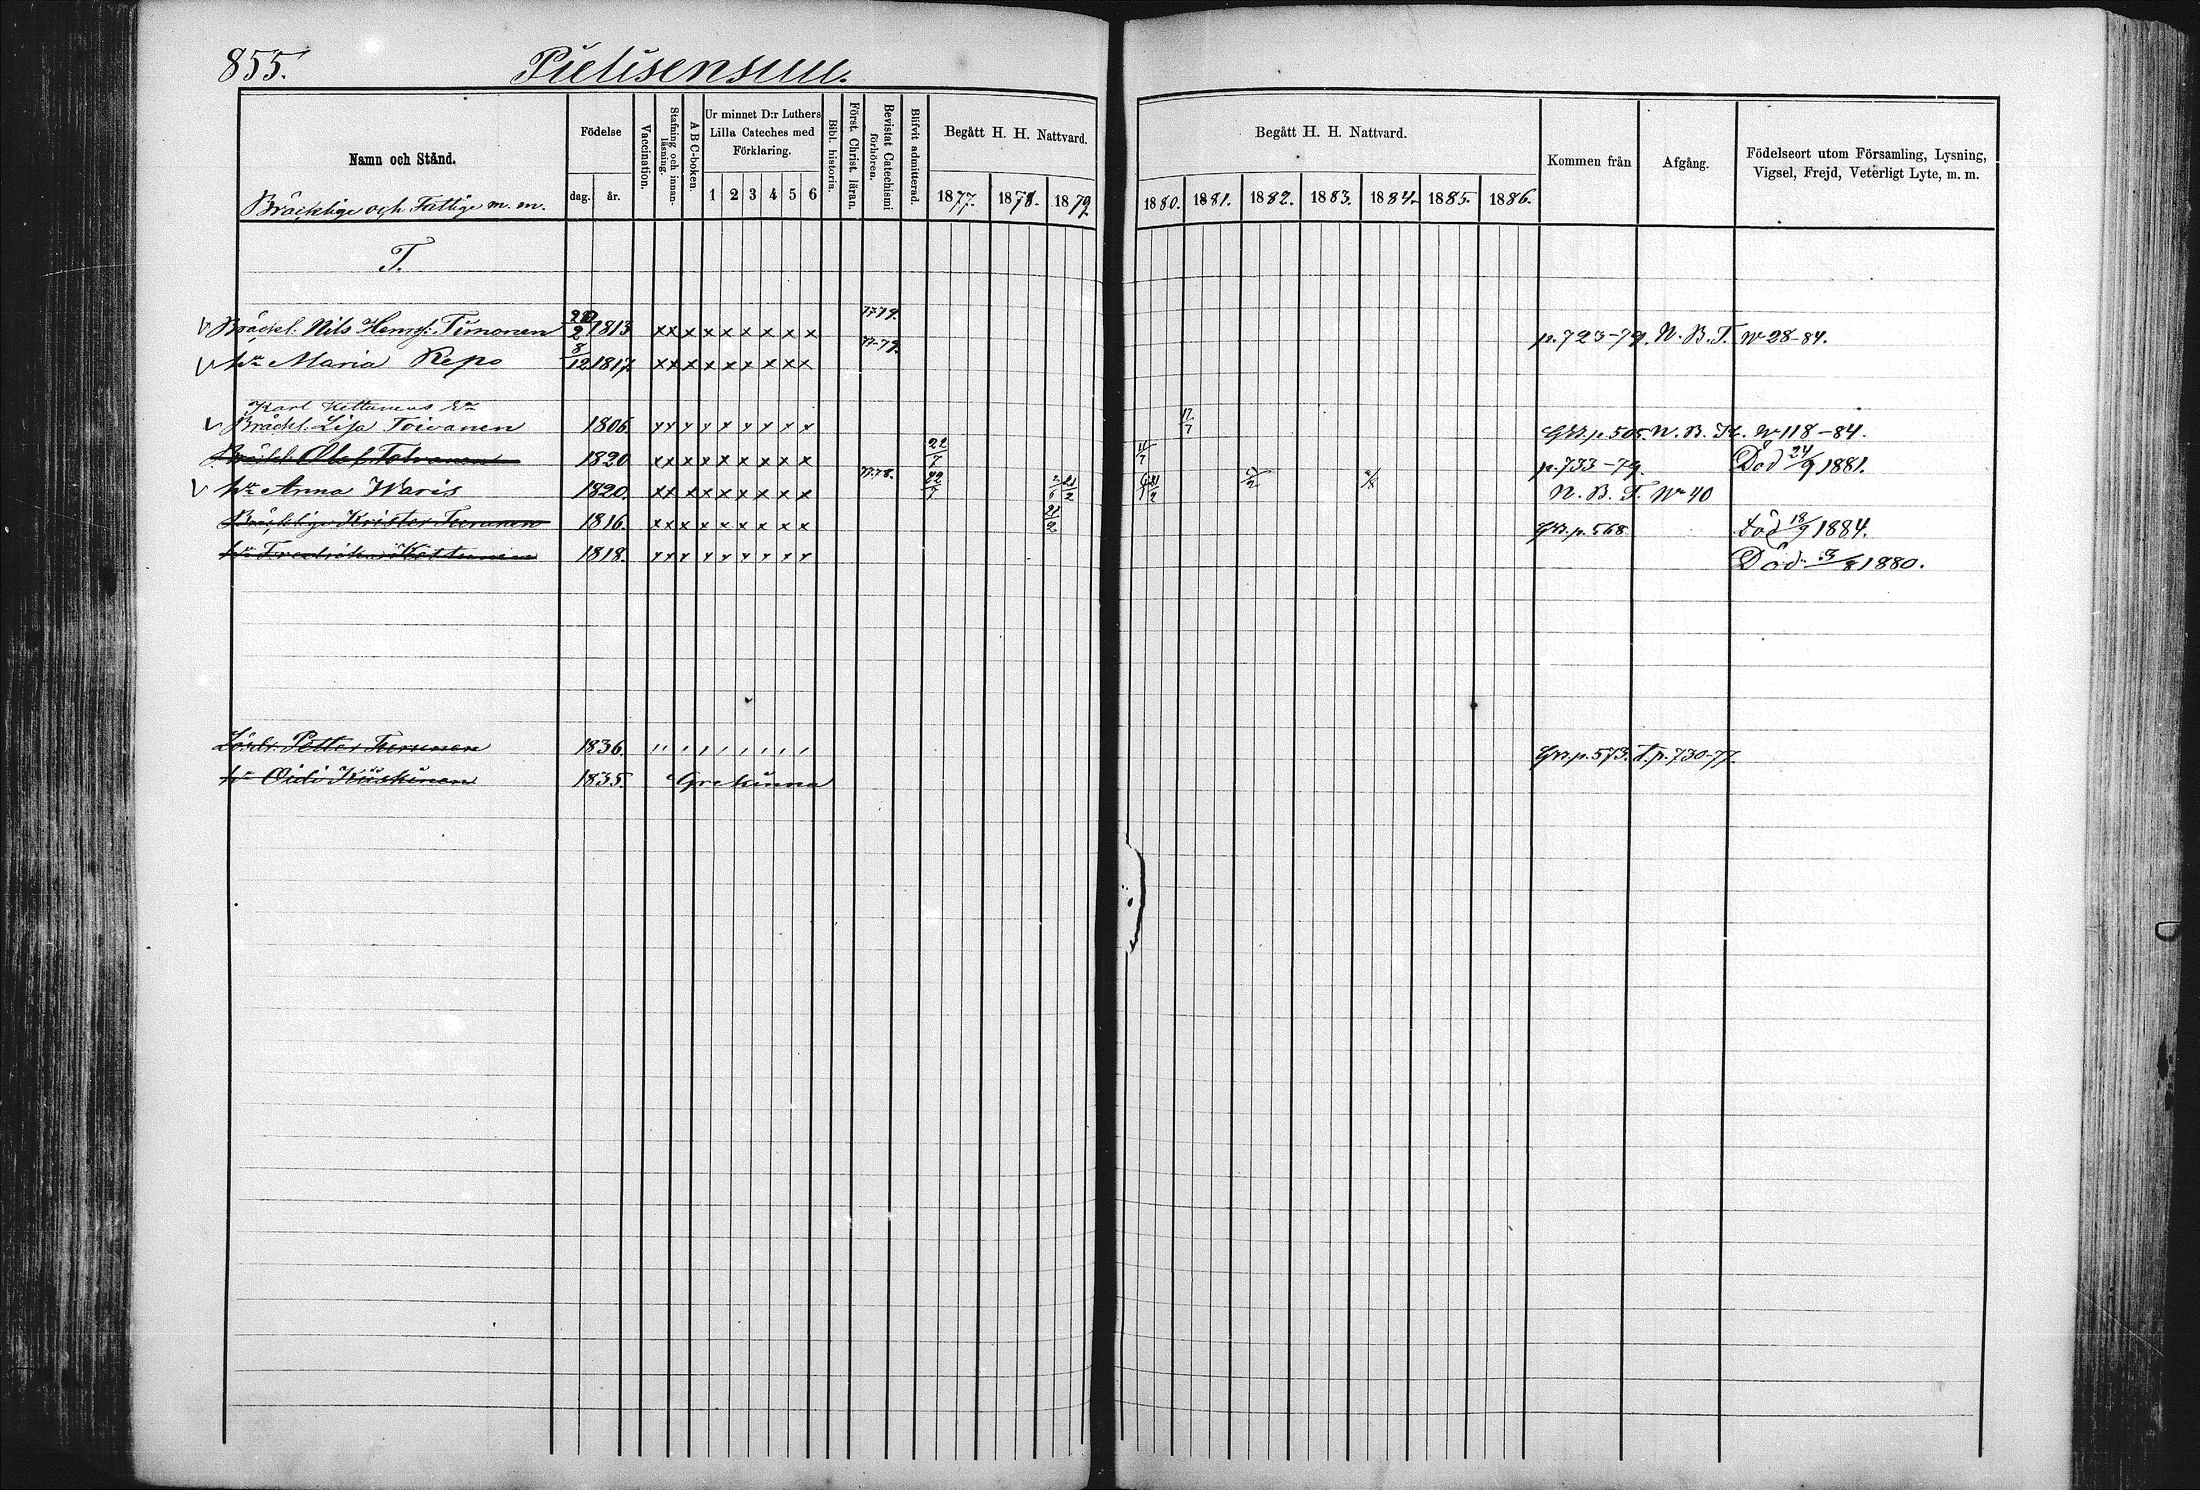 855. Pielisensuu.
Namn och Stånd.
Bräcklige och Fattige m. m.
Födelse
dag. år.
Vaccination.
Stafning och innanläsning.
A B C-boken.
Ur minnet D:r Luthers Lilla Cateches med Förklaring.
1 2 3 4 5 6
Bibl. historia.
Först. Christ. läran.
Bevistat Catechismi förhören.
Blifvit admitterad.
Begått H. H. Nattvard.
1877. 1878. 1879.
Begått H. H. Nattvard.
1880. 1881. 1882. 1883. 1884. 1885. 1886.
Kommen från
Afgång.
Födelseort utom Församling, Lysning, Vigsel, Frejd, Veterligt Lyte, m. m.
T.
Bräckl. Nils Timonen 1813 x x x x x x x x x 77 79. p. 723-79. N. B. T. No 28-84.
hu Maria Repo 8/12 1817. x x x x x x x x x 77-79.
Karl Kettunens
Bräckl. Lisa Toivanen 1806. x x x x x x x x x 17/7 p. 505. N. B. No 118-84.
Bräckl. Olof Toivanen 1820 x x x x x x x x x 22/7 p. 733-79. Död 24/9 1881.
hu Anna Waris 1820. x x x x x x x x x 77-78. 22/7 21/2 N. B. T. No 40
Bräcklige Krister Turunen 1816. x x x x x x x x x 21/2 p. 568. död 18/9 1884.
hu Fredrika Kettunen 1818. x x x x x x x x x Död 3/8 1880.
Lösdr. Petter Turunen 1836. p. 573. T. p. 730-77.
hu Kuiskinen 1835. Grekinna